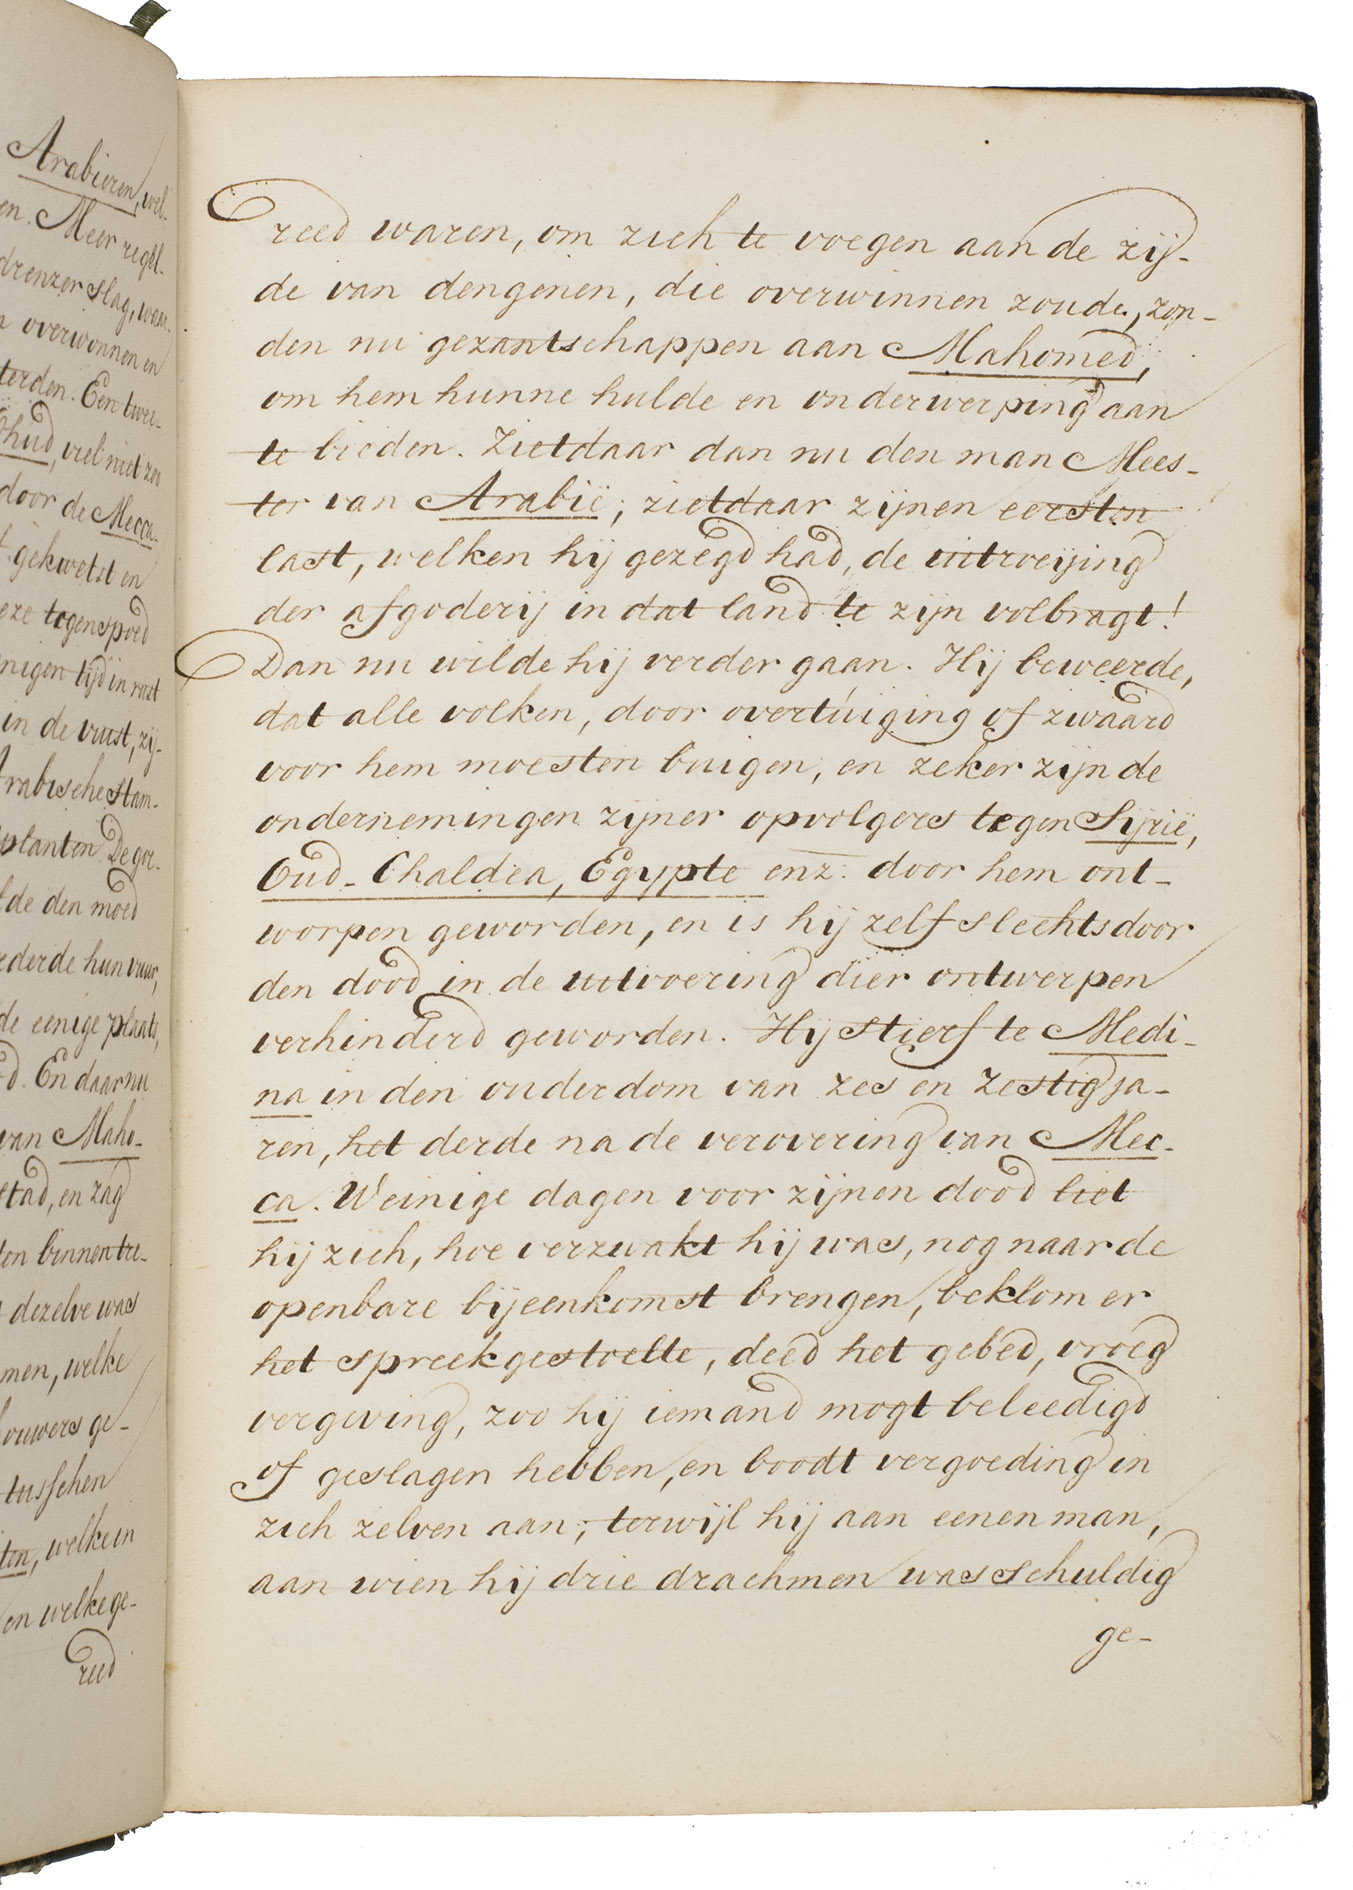 Arabieren, wel-
en. Meer regel-
drenzer slag, waar-
overwonnen en
terden. Een twee-
Ohud, viel niet zoo
door de Mecca-
gekwetst en
eze tegenspoed
enigen tijd in rust
in de vuist, zij-
Arabische stam-
planten. De goe-
lde den moed
rderde hun vuur,
de eenige plaats,
d. En daar nu
van Maho-
stad, en zag
ten binnen tre-
dezelve was
men, welke
ouwers ge-
tusschen
ten, welke in
en welke ge-
reed
reed waren, om zich te voegen aan de zij-
de van dengenen, die overwinnen zoude, zon-
den nu gezantschappen aan Mahomed,
om hem hunne hulde en onderwerping aan
te bieden. Zietdaar dan nu den man Mees-
ter van Arabië; zietdaar zijnen eersten
last, welken hij gezegd had, de uitroeijing
der afgoderij in dat land te zijn volbragt!
Dan nu wilde hij verder gaan. Hij beweerde,
dat alle volken, door overtuiging of zwaard
voor hem moesten buigen, en zeker zijn de
ondernemingen zijner opvolgers tegen Sijrië,
Oud-Chaldea, Egypte enz. door hem ont-
worpen geworden, en is hij zelf slechts door
den dood in de uitvoering dier ontwerpen
verhinderd geworden. Hij stierf te Medi-
na in den ouderdom van zes en zestig ja-
ren, het derde na de verovering van Mec-
ca. Weinige dagen voor zijnen dood liet
hij zich, hoe verzwakt hij was, nog naar de
openbare bijeenkomst brengen, beklom er
het spreekgestoelte, deed het gebed, vroeg
vergeving, zoo hij iemand mogt beleedigd
of geslagen hebben, en boodt vergoeding in
zich zelven aan; terwijl hij aan eenen man,
aan wien hij drie drachmen was schuldig
ge-